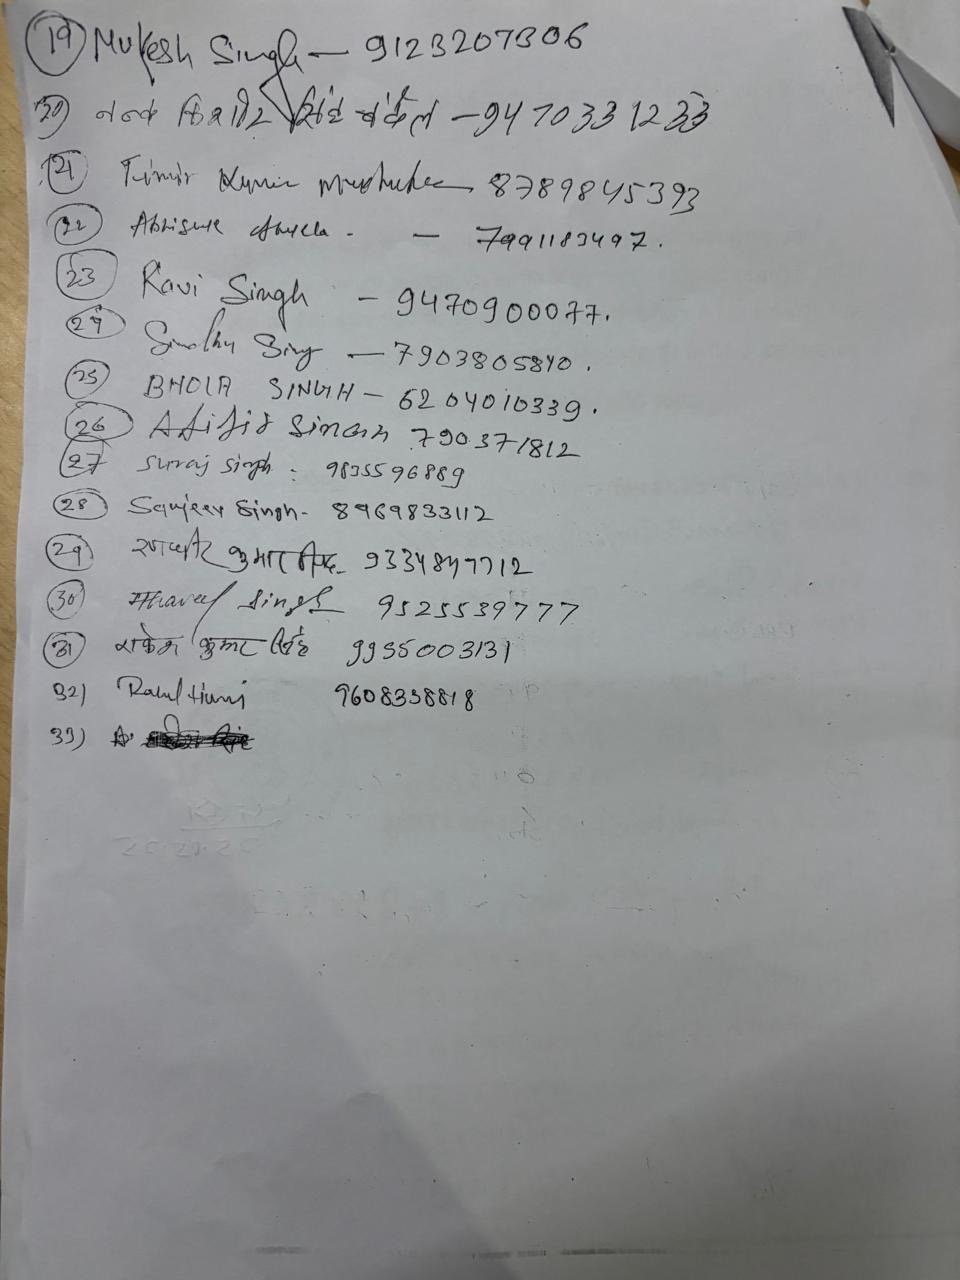 19 Mukesh Singh — 9123207306
20) नन्द किशोर सिंह चंदेल - 9470331233
21 Timir Kumar 8789845393
22 Abhisek — 7991183497.
23 Ravi Singh - 9470900077.
24 Sindhu Sing — 7903805840.
25 BHOLA SINGH - 6204010339.
26 Ajit Singh 790371812
27 Suraj Singh : 9835596889
28 Sanjeev Singh - 8969833112
29 कुमार सिंह - 9334847712
30 Singh 9525539777
31 राकेश कुमार सिंह 9955003131
32) 9608338818
33)